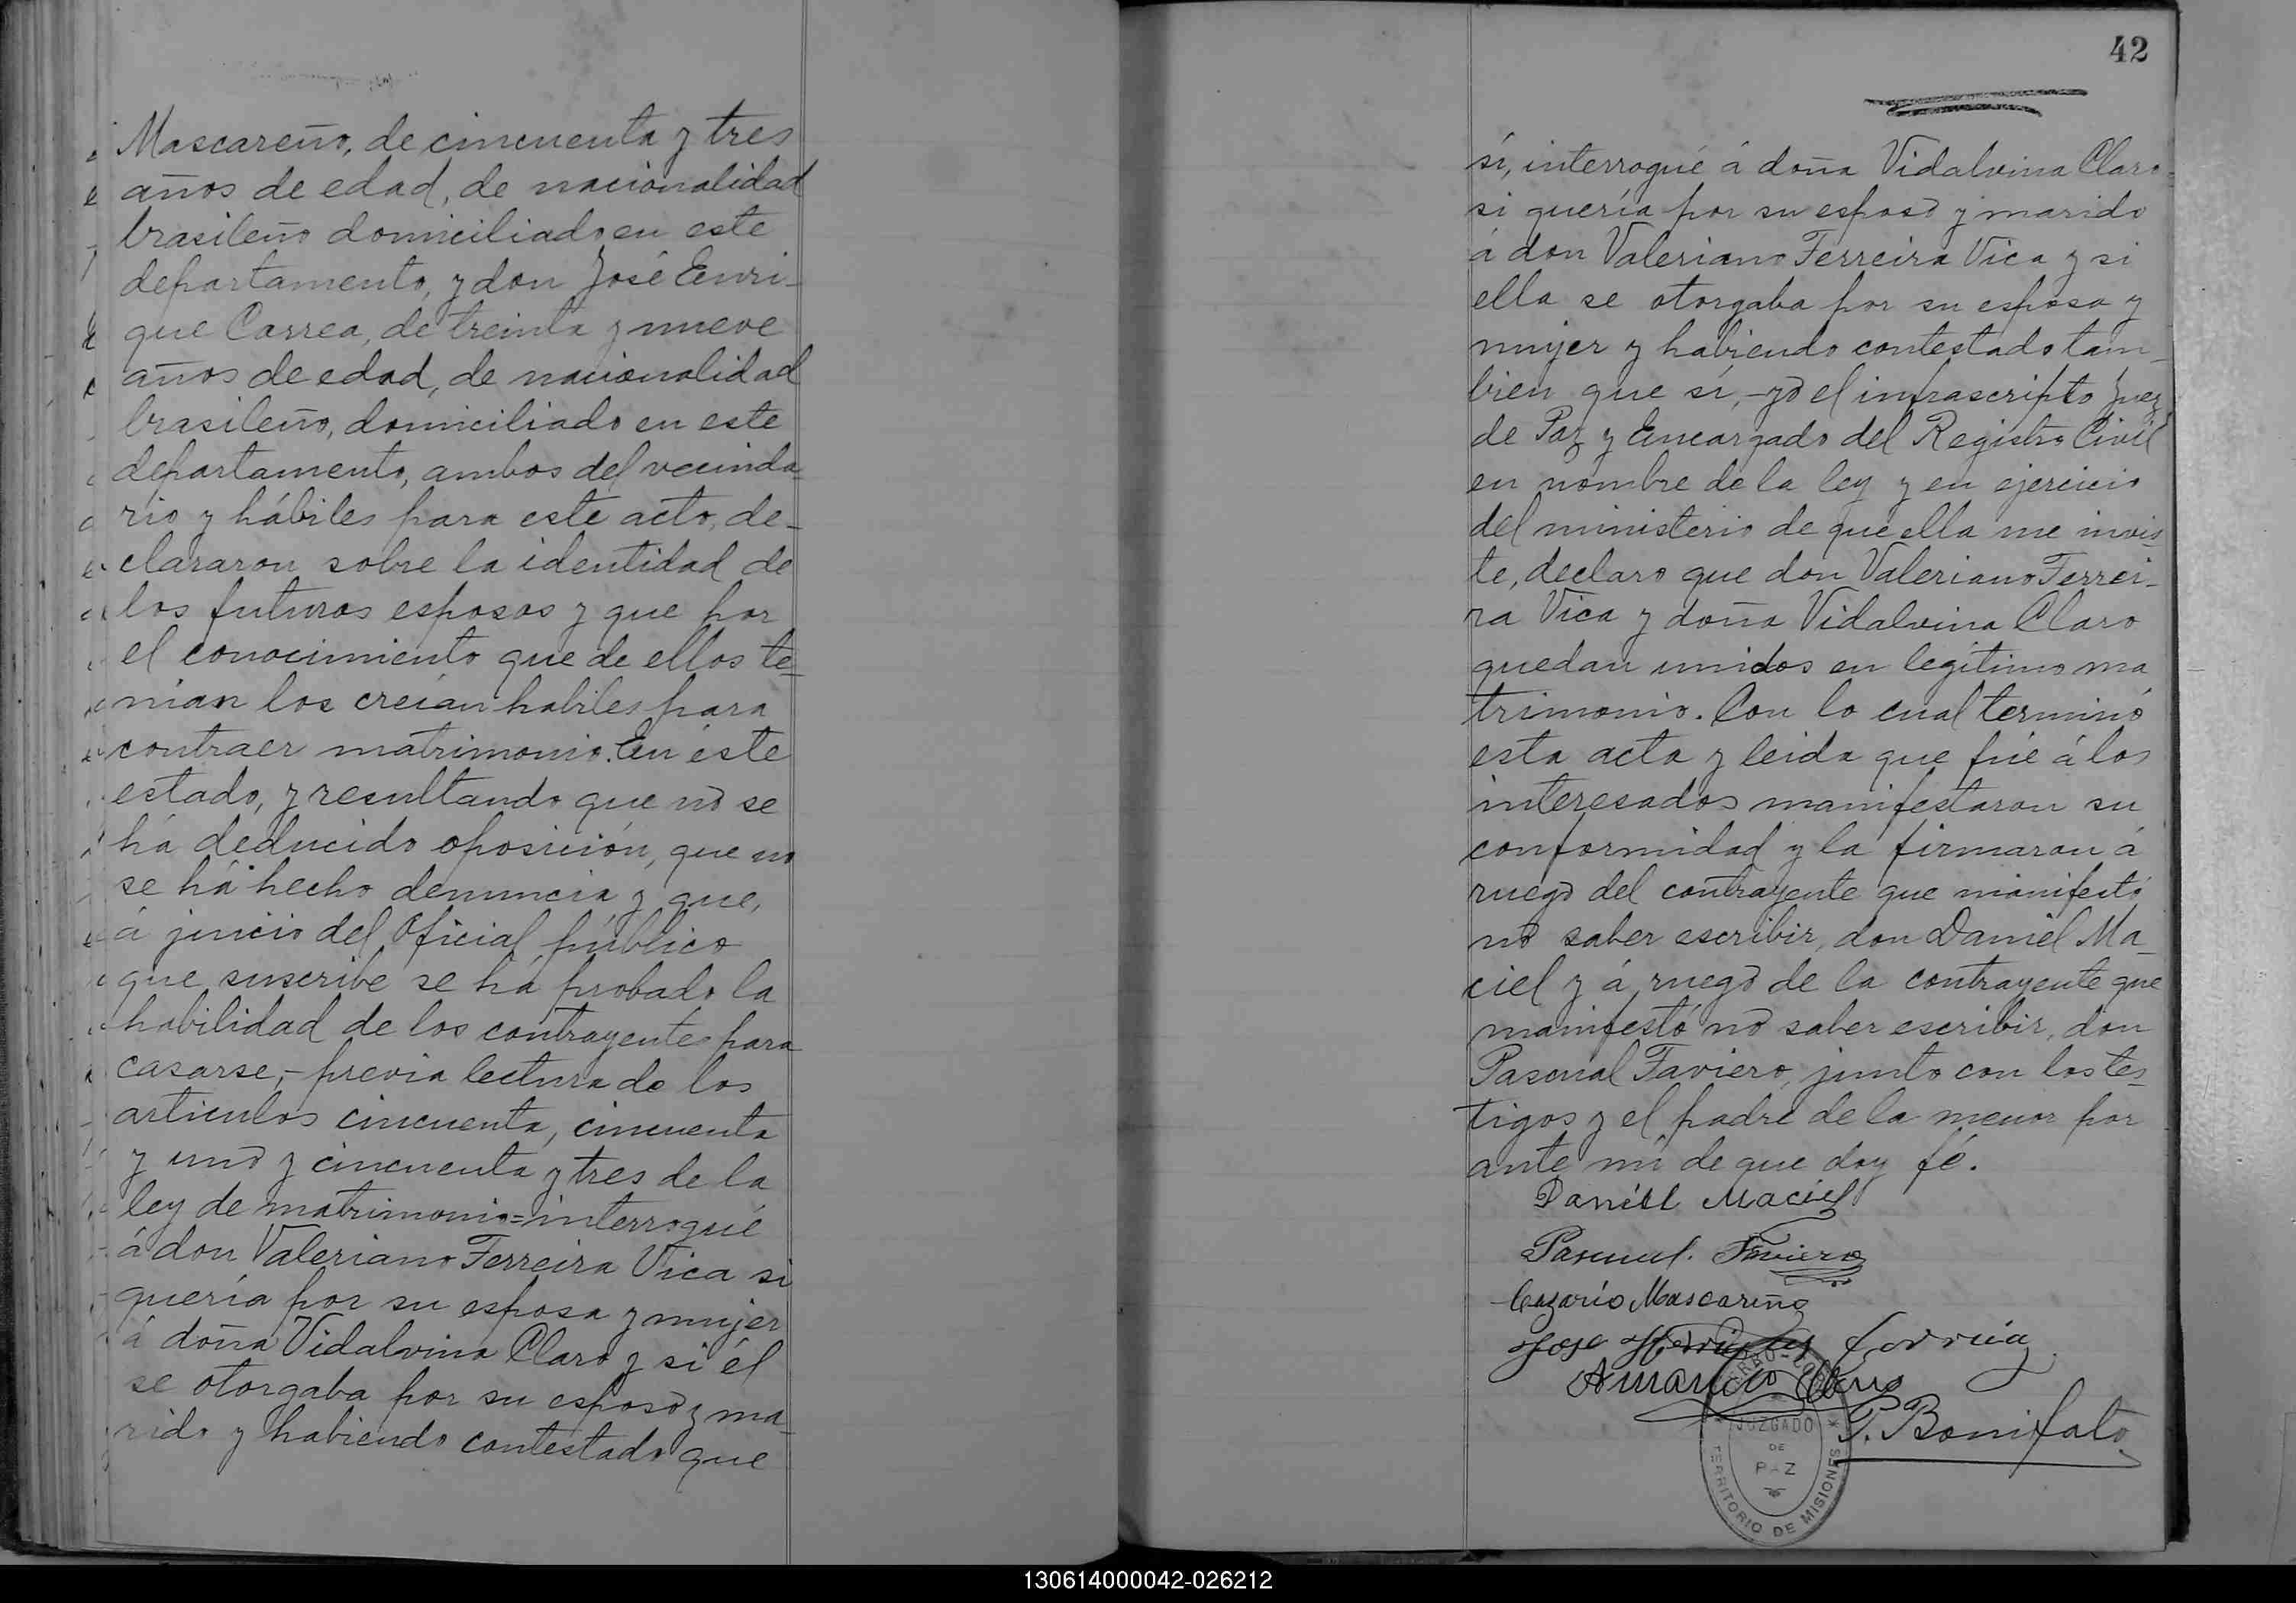 Mascareño, de cincuenta y tres
años de edad, de nacionalidad
brasileño domiciliado en este
departamento, y don José Enri-
que Correa, de treinta y nueve
años de edad, de nacionalidad
brasileño, domiciliado en este
departamento, ambos del vecinda-
rio y hábiles para este acto, de-
clararon sobre la identidad de
los futuros esposos y que por
el conocimiento que de ellos te-
nían los creían habiles para
contraer matrimonio. En éste
estado, y resultando que nó se
há deducido oposición, que no
se há hecho denuncia y que,
á juicio del Oficial público
que suscribe se há probado la
habilidad de los contrayentes para
casarse,- previa lectura de los
articulos cincuenta, cincuenta
y uno y cincuenta y tres de la
ley de matrimonio= interrogué
á don Valeriano Ferreira Vica si
quería por su esposa y mujer
á doña Vidalvina Claro y si él
se otorgaba por su esposo y ma-
rido y habiendo contestado que
42
sí, interrogué á doña Vidalvina Claro
si quería por su esposo y marido
á don Valeriano Ferreira Vica y si
ella se otorgaba por su esposa y
mujer y habiendo contestado tam-
bien que sí,- yo el infrascripto Juez
de Paz y Encargado del Registro Civil
en nombre de la ley y en ejercicio
del ministerio de que ella me invis-
te, declaro que don Valeriano Ferrei-
ra Vica y doña Vidalvina Claro
quedan unidos en legítimo ma
trimonio. Con lo cual terminó
esta acta y leida que fué á los
interesados manifestaron su
conformidad y la firmaron á
ruego del contrayente que manifestó
nó saber escribir, don Daniel Ma-
ciel y á ruego de la contrayente que
manifestó nó saber escribir, don
Pascual Faviero, junto con los tes-
tigos y el padre de la menor por
ante mí de que doy fé.
Daniel Maciel
Pascual. Faviero
Cezario Mascareño
Jose Henrique Correia
Amancio Claro
P. Bonifato
JUZGADO
DE
PAZ
TERRITORIO DE MISIONES
130614000042-026212